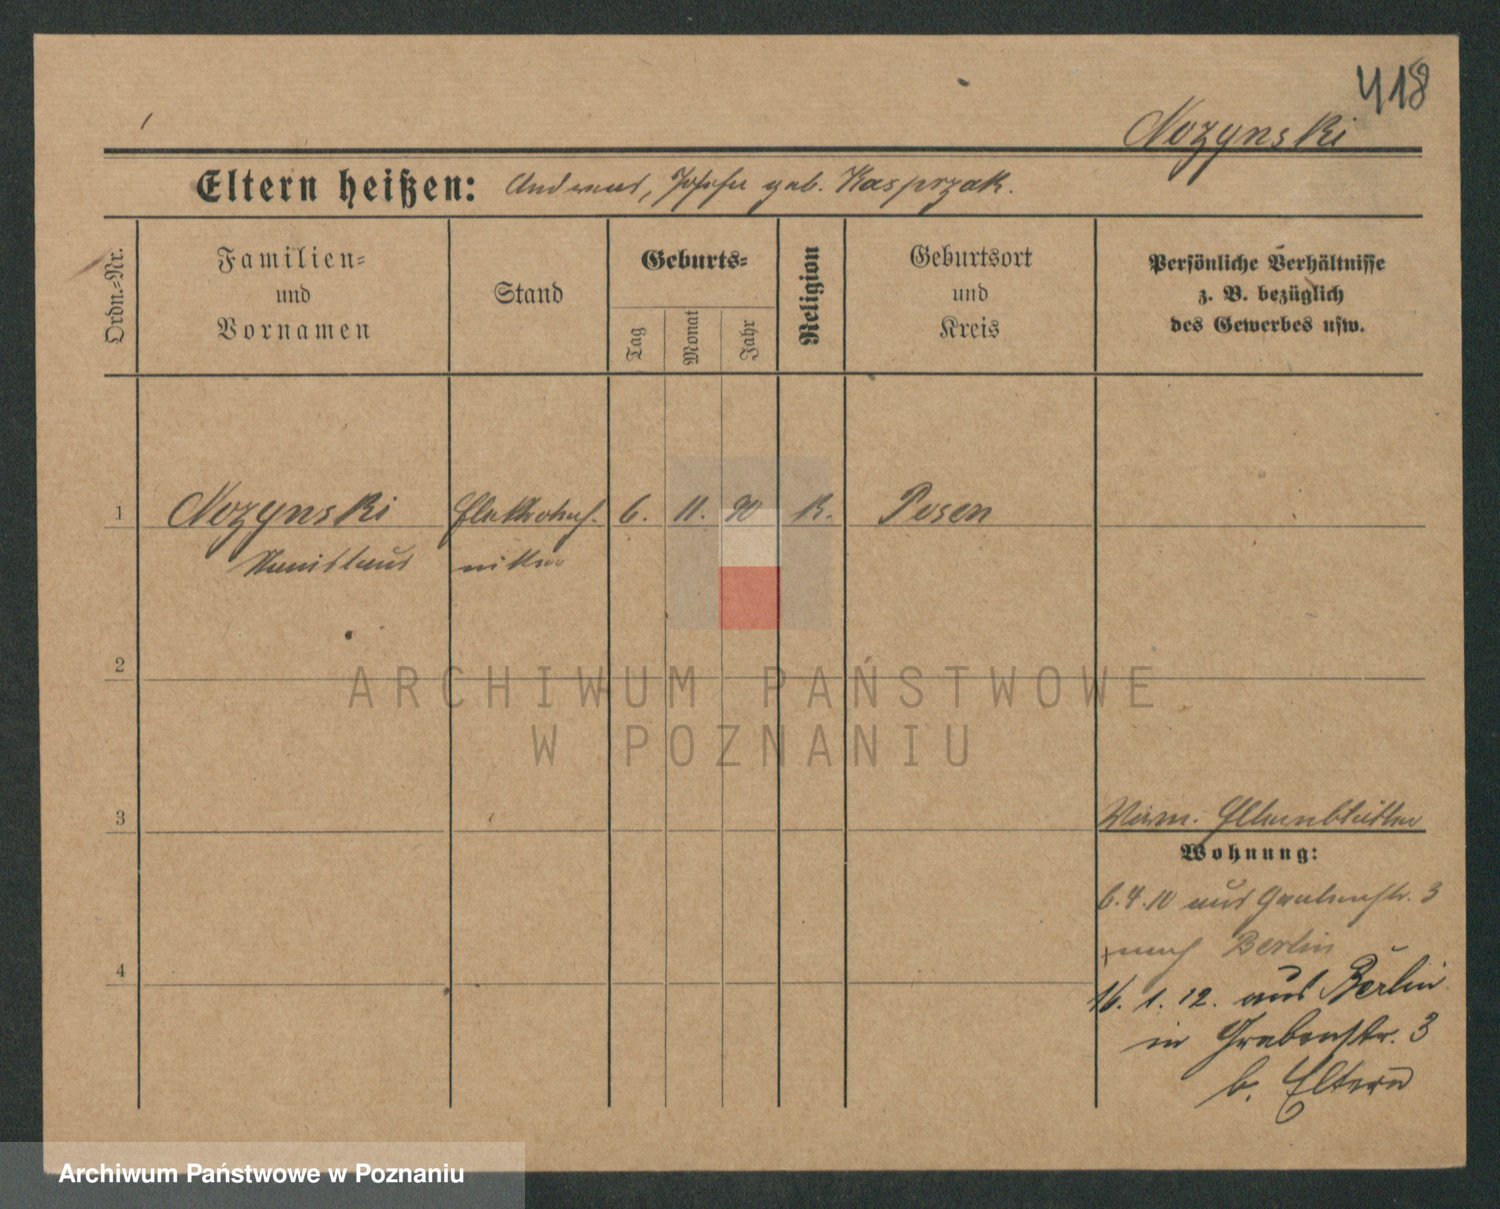 418
Nozynski
Eltern heißen: Andreas, Josefa geb. Kasprzak.
Ordn.=Nr.
Familien=
und
Vornamen
Stand
Geburts=
Tag
Monat
Jahr
Religion
Geburtsort
und
Kreis
Persönliche Verhältnisse
z. B. bezüglich
des Gewerbes usw.
1 Nozynski Elektrotech- 6. 11. 90 K. Posen
Stanislaus niker
2
ARCHIWUM PAŃSTWOWE
W POZNANIU
3
Elternblätter
Wohnung:
6.4.10 aus Grabenstr. 3
nach Berlin
4
16. 1. 12. aus Berlin
in Grabenstr. 3
b. Eltern
Archiwum Państwowe w Poznaniu